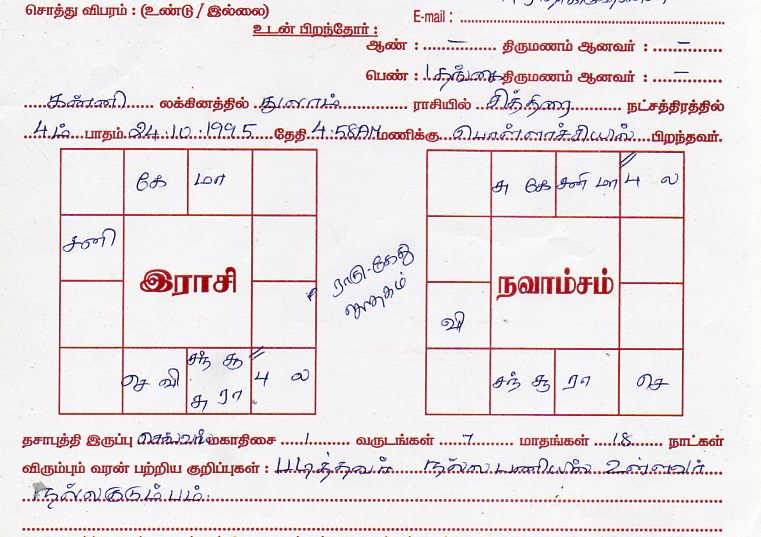 சொத்து விபரம் : (உண்டு / இல்லை)
E-mail :
உடன் பிறந்தோர் :
ஆண் : – திருமணம் ஆனவர் : –
பெண் : 1 தங்கை திருமணம் ஆனவர் : –
கன்னி லக்கினத்தில் துலாம் ராசியில் சித்திரை நட்சத்திரத்தில்
4ம் பாதம் 24.10.1995 தேதி 4.58AM மணிக்கு பொள்ளாச்சியில் பிறந்தவர்.
கே மா
சனி
இராசி
செ வி
சந் சூ
சு ரா
4 ல
ராகு-கேது
ஜாதகம்
சு கே சனி மா 4 ல
நவாம்சம்
வி
சந் சூ ரா செ
தசாபுத்தி இருப்பு செவ்வாய் மகாதிசை 1 வருடங்கள் 7 மாதங்கள் 18 நாட்கள்
விரும்பும் வரன் பற்றிய குறிப்புகள் : படித்தவர் நல்ல பணியில் உள்ளவர்
நல்லகுடும்பம்.